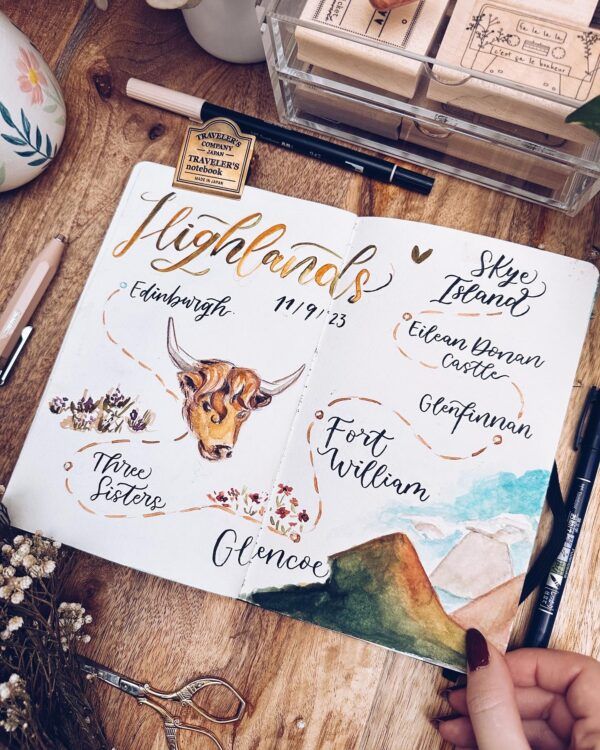 TRAVELER'S
COMPANY
JAPAN
TRAVELER'S
notebook
MADE IN JAPAN
la la la la
c'est ça le bonheur
Highlands
11/9/'23
Edinburgh
Three
Sisters
Glencoe
Fort
William
Glenfinnan
Eilean Donan
Castle
Skye
Island